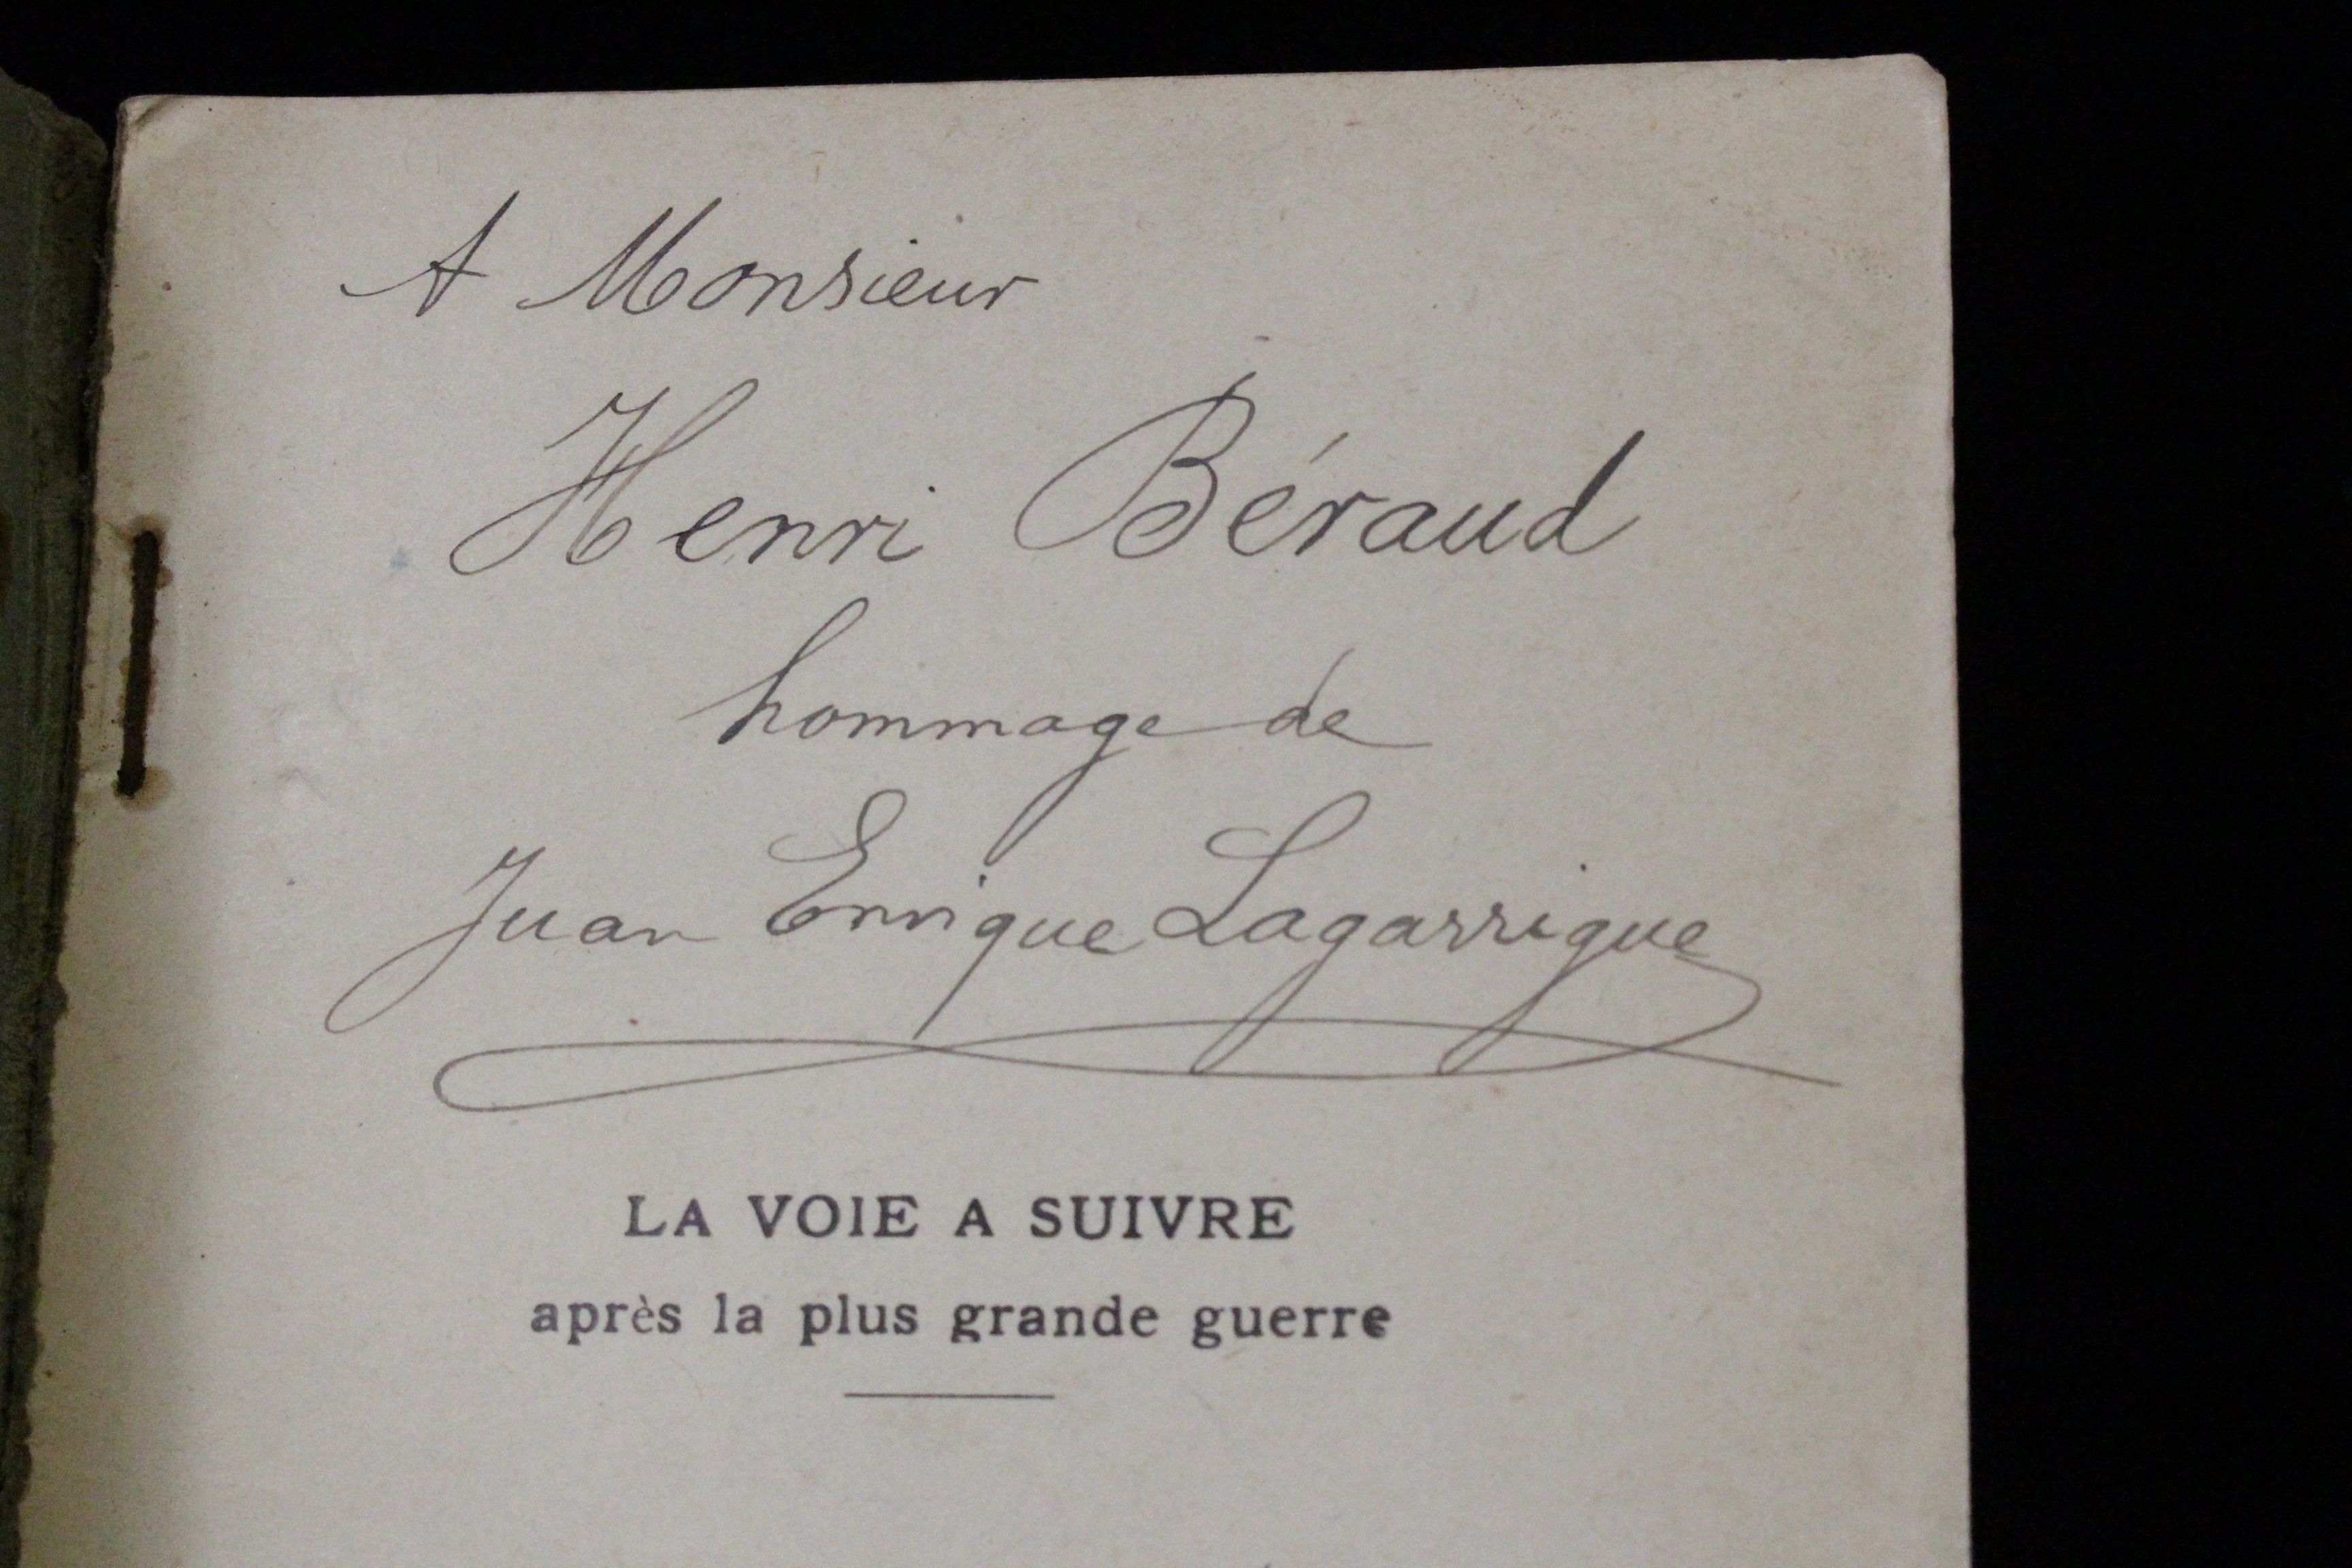 A Monsieur
Henri Béraud
hommage de
Juan Enrique Lagarrigue
LA VOIE A SUIVRE
après la plus grande guerre